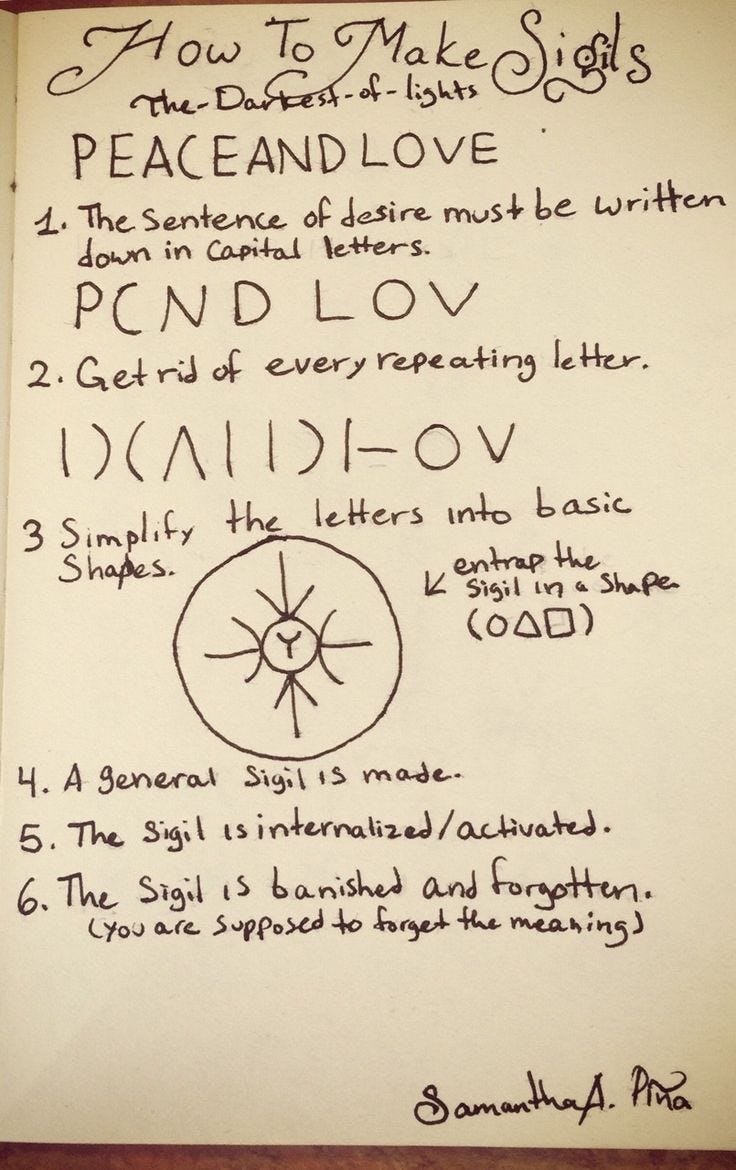 How To Make Sigils
The-Darkest-of-lights
PEACEANDLOVE
1. The sentence of desire must be written
down in Capital letters.
PCND LOV
2. Get rid of every repeating letter.
3 Simplify the letters into basic
Shapes.
entrap the
Sigil in a shape
4. A general Sigil is made.
5. The Sigil is internalized/activated.
6. The Sigil is banished and forgotten.
(you are supposed to forget the meaning)
Samantha A. Piña